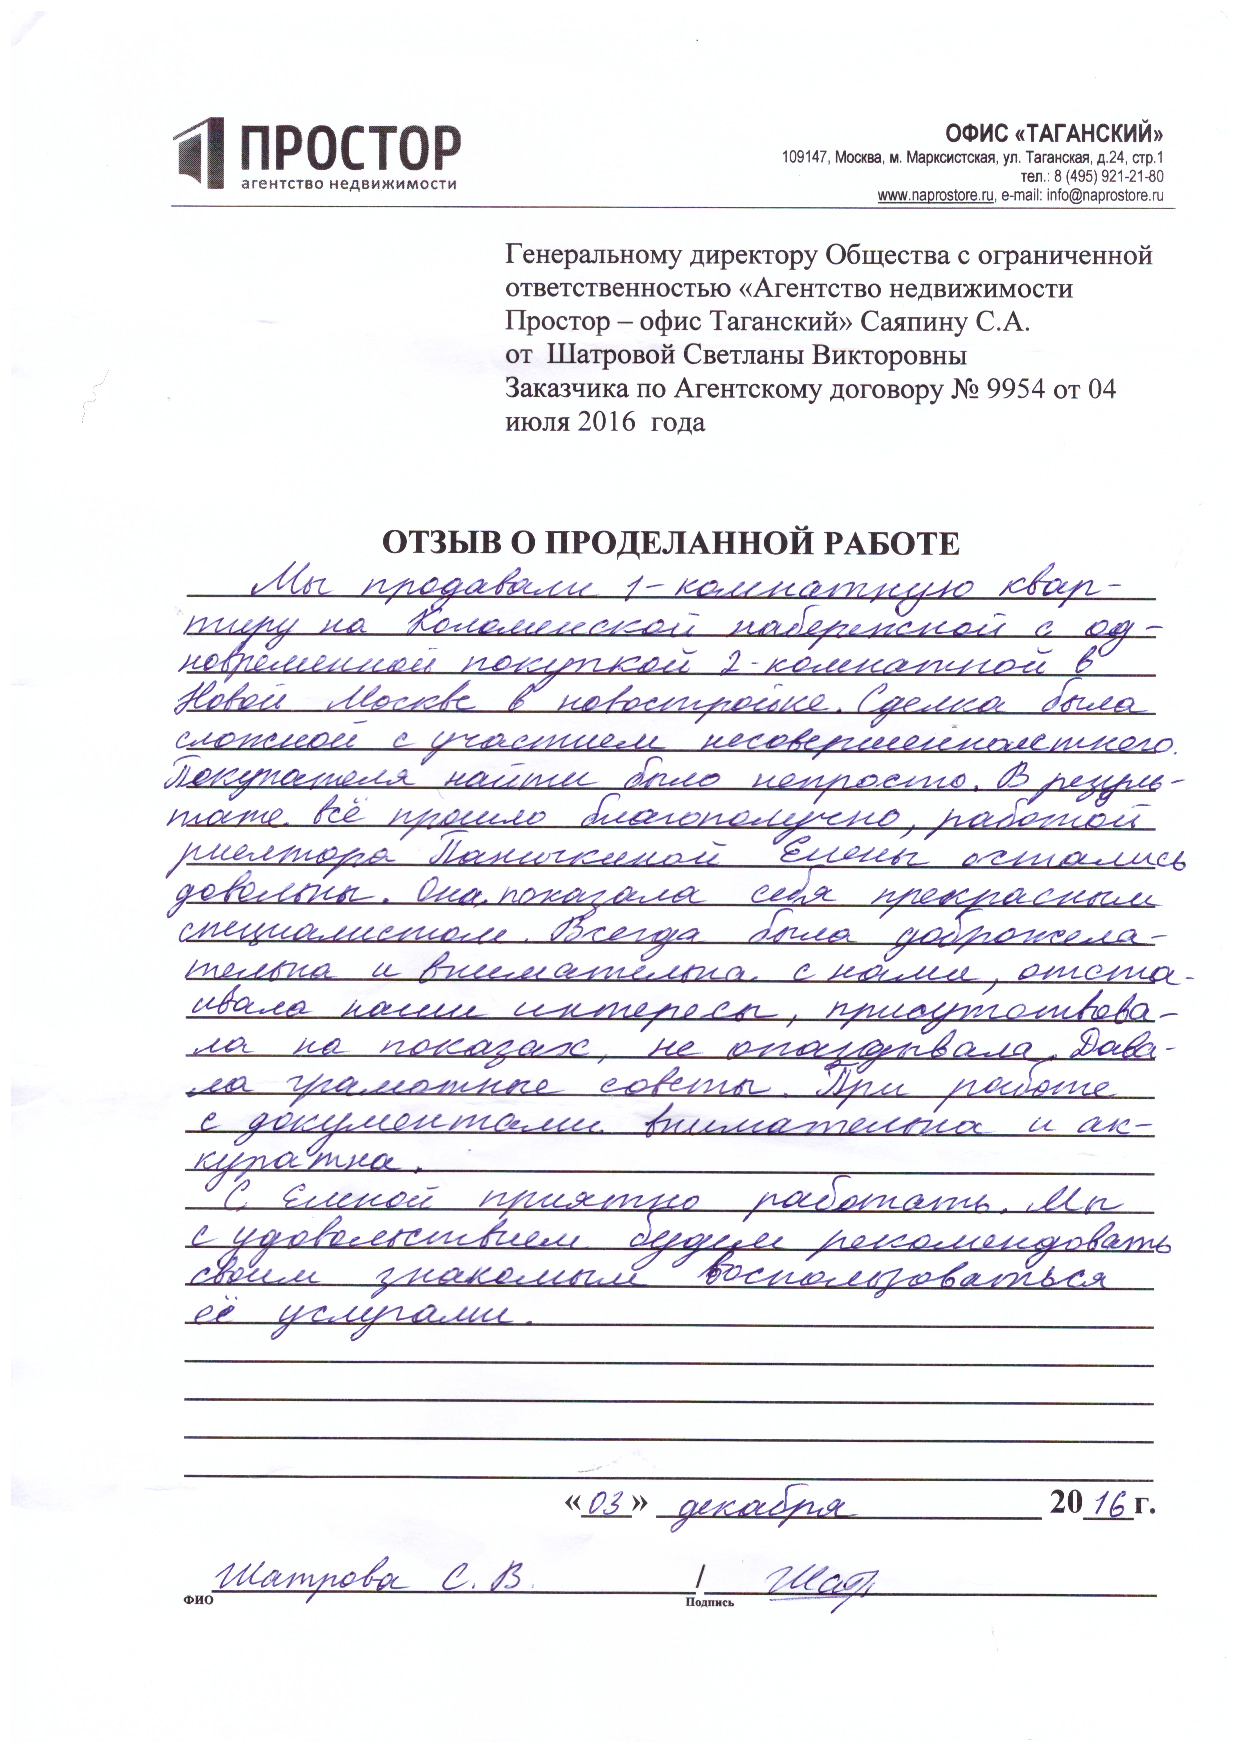 ПРОСТОР
агентство недвижимости
ОФИС «ТАГАНСКИЙ»
109147, Москва, м. Марксистская, ул. Таганская, д.24, стр.1
тел.: 8 (495) 921-21-80
www.naprostore.ru, e-mail: info@naprostore.ru
Генеральному директору Общества с ограниченной
ответственностью «Агентство недвижимости
Простор – офис Таганский» Саяпину С.А.
от Шатровой Светланы Викторовны
Заказчика по Агентскому договору № 9954 от 04
июля 2016 года
ОТЗЫВ О ПРОДЕЛАННОЙ РАБОТЕ
Мы продавали 1-комнатную квар-
тиру на Коломенской набережной с од-
новременной покупкой 2-комнатной в
Новой Москве в новостройке. Сделка была
сложной с участием несовершеннолетнего.
Покупателя найти было непросто. В резуль-
тате всё прошло благополучно, работой
риелтора Паничкиной Елены остались
довольны. Она показала себя прекрасным
специалистом. Всегда была доброжела-
тельна и внимательна с нами, отста-
ивала наши интересы, присутствова-
ла на показах, не опаздывала. Дава-
ла грамотные советы. При работе
с документами внимательна и ак-
куратна.
С Еленой приятно работать. Мы
с удовольствием будем рекомендовать
своим знакомым воспользоваться
её услугами.
«03» декабря 2016г.
Шатрова С. В. / Шатр
ФИО Подпись